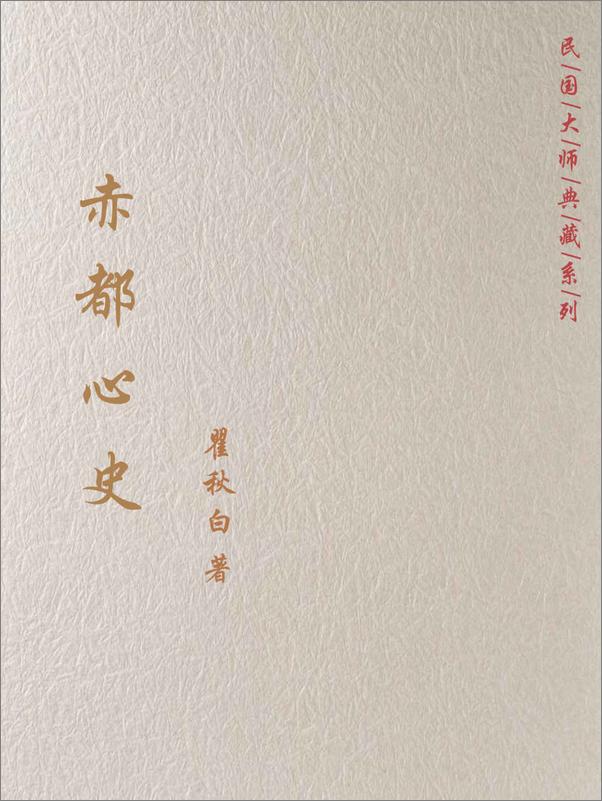 民国大师典藏系列
赤都心史
瞿秋白著